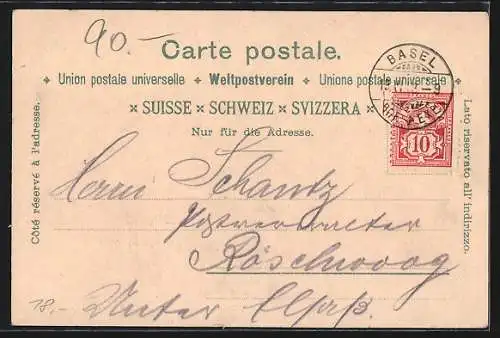 90.-
Carte postale.
Union postale universelle Weltpostverein Unione postale universale
SUISSE × SCHWEIZ × SVIZZERA
Nur für die Adresse.
Côté réservé à l'adresse.
Lato riservato all' indirizzo.
BASEL
10
Herrn Schantz
Postverwalter
Röschwoog
18.- Unter Elsaß.